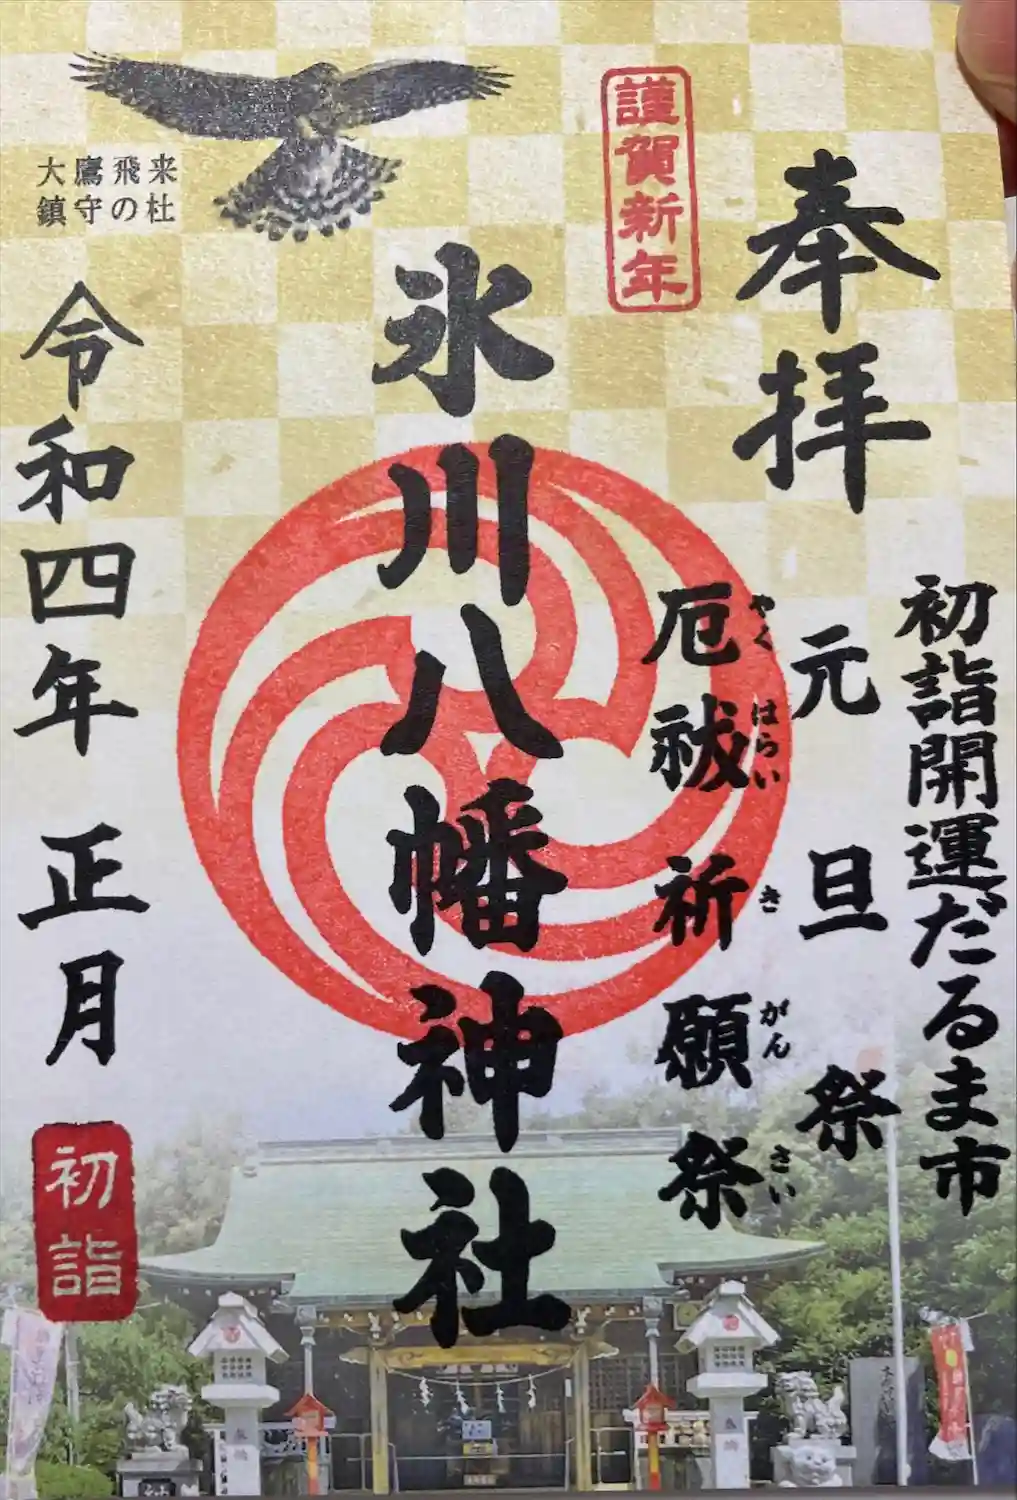 奉拝
謹賀新年
初詣開運だるま市
元旦祭
厄祓祈願祭
やくはらいきがんさい
氷川八幡神社
大鷹飛来
鎮守の杜
令和四年 正月
初詣